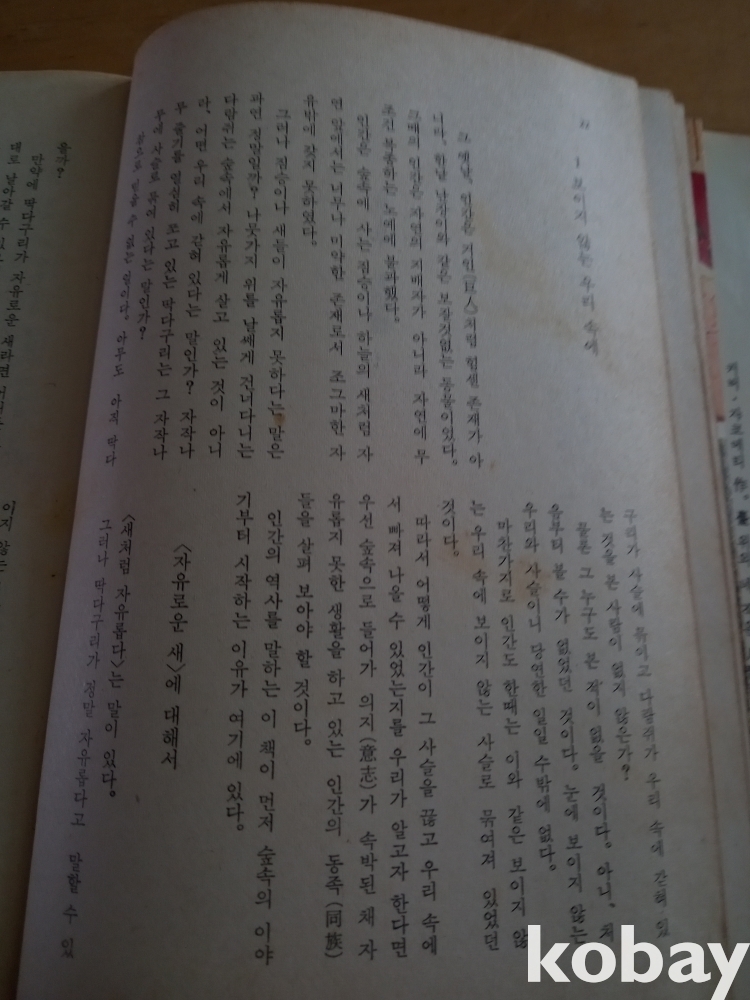 1 보이지 않는 우리 속에
그 옛날, 인간은 거인(巨人)처럼 힘센 존재가 아
니라, 한낱 난장이와 같은 보잘것없는 동물이었다.
그때의 인간은 자연의 지배자가 아니라 자연에 무
조건 복종하는 노예에 불과했다.
인간은 숲속에 사는 짐승이나 하늘의 새처럼 자
연 앞에서는 너무나 미약한 존재로서 조그마한 자
유밖에 갖지 못하였다.
그러나 짐승이나 새들이 자유롭지 못하다는 말은
과연 정말일까? 나뭇가지 위를 날쌔게 건너다니는
다람쥐는 숲속에서 자유롭게 살고 있는 것이 아니
라, 어떤 우리 속에 갇혀 있다는 말인가? 자작나
무 줄기를 열심히 쪼고 있는 딱다구리는 그 자작나
무에 사슬로 묶여 있다는 말인가?
참으로 믿을 수 없는 말이다. 아무도 아직 딱다
구리가 사슬에 묶이고 다람쥐가 우리 속에 갇혀 있
는 것을 본 사람이 없지 않은가?
물론 그 누구도 본 적이 없을 것이다. 아니, 처
음부터 볼 수가 없었던 것이다. 눈에 보이지 않는
우리와 사슬이니 당연한 일일 수밖에 없다.
마찬가지로 인간도 한때는 이와 같은 보이지 않
는 우리 속에 보이지 않는 사슬로 묶여져 있었던
것이다.
따라서 어떻게 인간이 그 사슬을 끊고 우리 속에
서 빠져 나올 수 있었는지를 우리가 알고자 한다면
우선 숲속으로 들어가 의지(意志)가 속박된 채 자
유롭지 못한 생활을 하고 있는 인간의 동족(同族)
들을 살펴 보아야 할 것이다.
인간의 역사를 말하는 이 책이 먼저 숲속의 이야
기부터 시작하는 이유가 여기에 있다.
〈자유로운 새〉에 대해서
〈새처럼 자유롭다〉는 말이 있다.
그러나 딱다구리가 정말 자유롭다고 말할 수 있
을까?
만약에 딱다구리가 자유로운 새라면
대로 날아갈 수 있
이지 않는
kobay